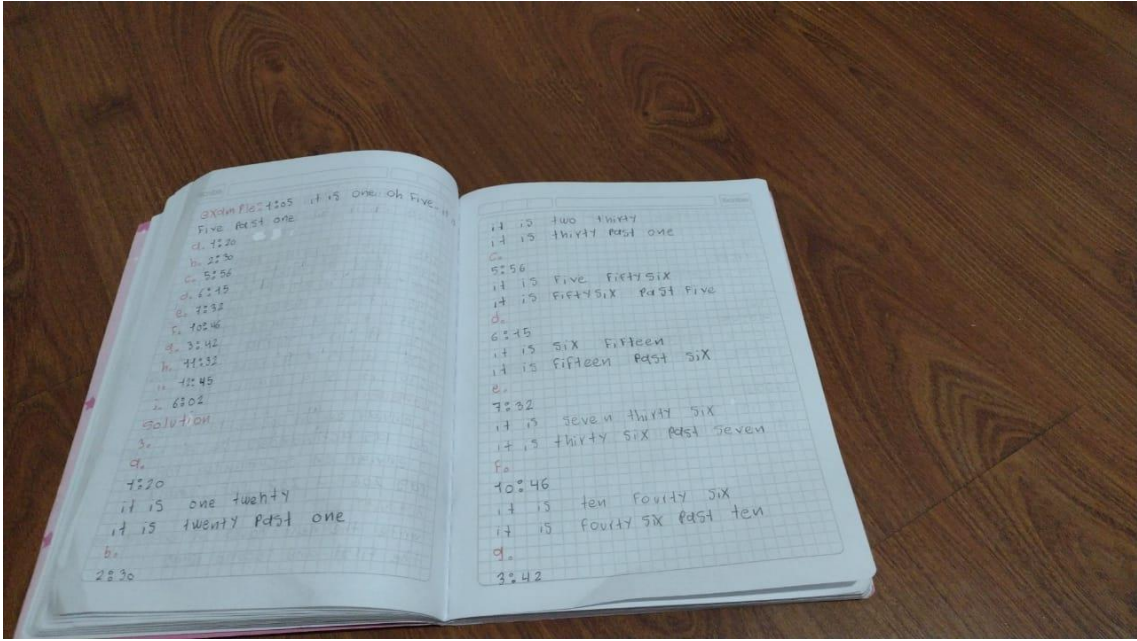 example: 1:05 it is one oh five. it is
five past one
a. 1:20
b. 2:30
c. 5:56
d. 6:15
e. 7:32
f. 10:46
g. 3:42
h. 11:32
i. 12:45
j. 6:02
solution
3.
a.
1:20
it is one twenty
it is twenty past one
b.
2:30
it is two thirty
it is thirty past one
c.
5:56
it is five fifty six
it is fifty six past five
d.
6:15
it is six fifteen
it is fifteen past six
e.
7:32
it is seven thirty six
it is thirty six past seven
f.
10:46
it is ten fourty six
it is fourty six past ten
g.
3:42